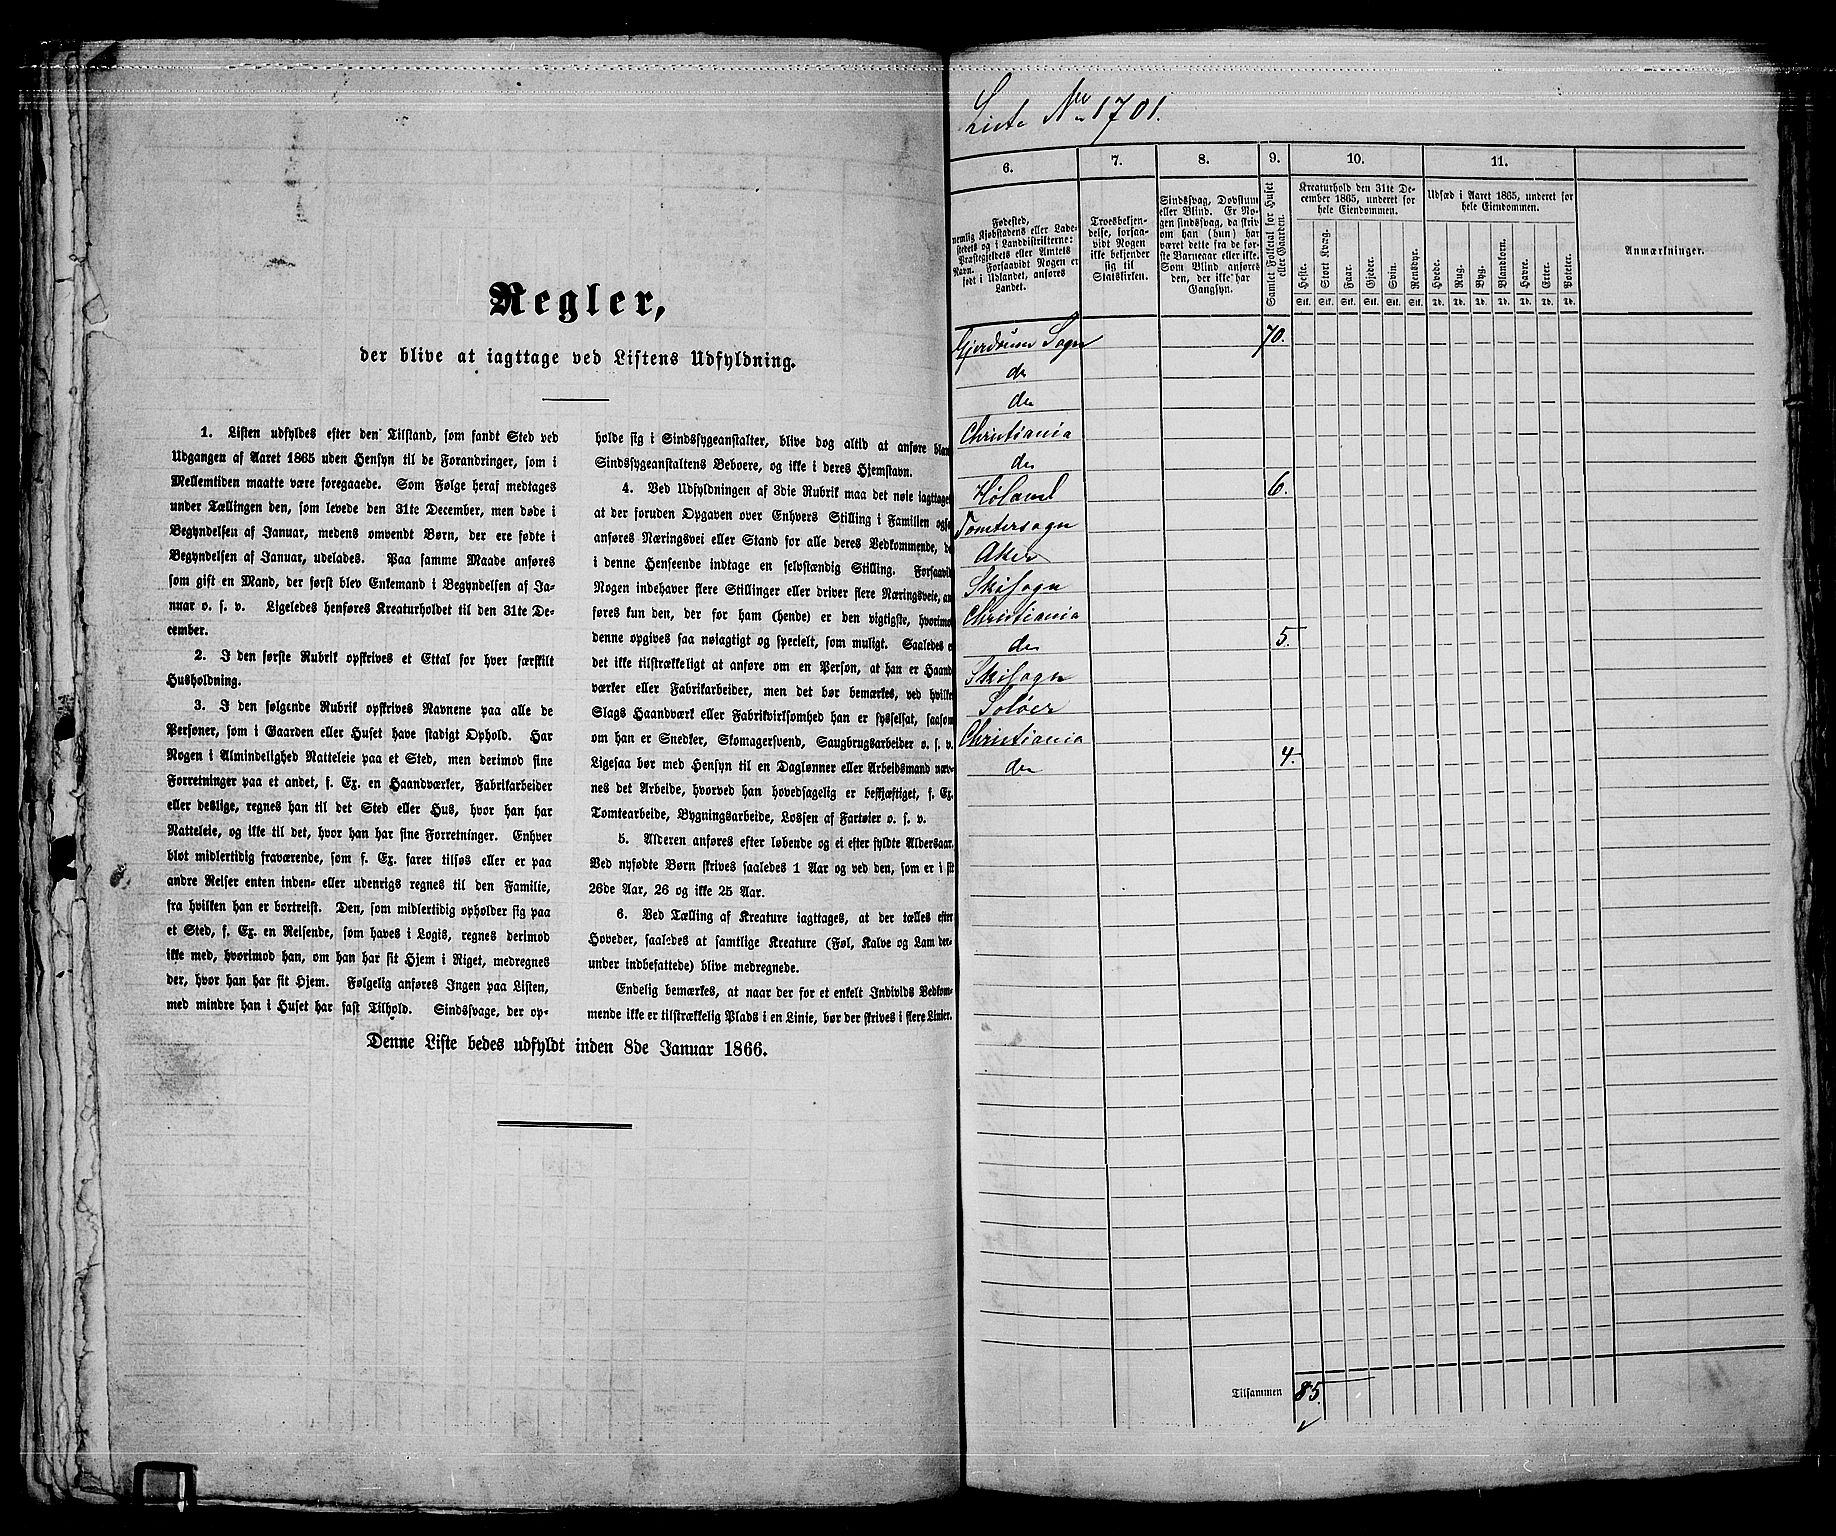 Regler,
der blive at iagttage ved Listens Udfyldning.
1. Listen udfyldes efter den Tilstand, som fandt Sted ved
Udgangen af Aaret 1865 uden Hensyn til de Forandringer, som i
Mellemtiden maatte være foregaaede. Som Følge heraf medtages
under Tællingen den, som levede den 31te December, men døde i
Begyndelsen af Januar, medens omvendt Børn, der ere fødte i
Begyndelsen af Januar, udelades. Paa samme Maade anføres
som gift en Mand, der først blev Enkemand i Begyndelsen af Ja-
nuar o. s. v. Ligeledes henføres Kreaturholdet til den 31te De-
cember.
2. I den første Rubrik opskrives et Ettal for hver særskilt
Husholdning.
3. I den følgende Rubrik opskrives Navnene paa alle de
Personer, som i Gaarden eller Huset have stadigt Ophold. Har
Nogen i Almindelighed Natteleie paa et Sted, men derimod sine
Forretninger paa et andet, f. Ex. en Haandværker, Fabrikarbeider
eller deslige, regnes han til det Sted eller Hus, hvor han har
Natteleie, og ikke til det, hvor han har sine Forretninger. Enhver
blot midlertidig fraværende, som f. Ex. farer tilsøs eller er paa
andre Reiser enten inden- eller udenrigs regnes til den Familie,
fra hvilken han er bortreist. Den, som midlertidig opholder sig paa
et Sted, f. Ex. en Reisende, som haves i Logis, regnes derimod
ikke med, hvorimod han, om han har sit Hjem i Riget, medregnes
der, hvor han har sit Hjem. Følgelig anføres Ingen paa Listen,
med mindre han i Huset har fast Tilhold. Sindssvage, der op-
holde sig i Sindssygeanstalter, blive dog altid at anføre blan
Sindssygeanstaltens Beboere, og ikke i deres Hjemstavn.
4. Ved Udfyldningen af 3die Rubrik maa det nøie iagttages
at der foruden Opgaven over Enhvers Stilling i Familien ogsa
anføres Næringsvei eller Stand for alle deres Vedkommende, de
i denne Henseende indtage en selvstændig Stilling. Forsaavidt
Nogen indehaver flere Stillinger eller driver flere Næringsveie, an
føres kun den, der for ham (hende) er den vigtigste, hvorimod
denne opgives saa nøiagtigt og specielt, som muligt. Saaledes e
det ikke tilstrækkeligt at anføre om en Person, at han er Haand
værker eller Fabrikarbeider, men det bør bemærkes, ved hvilke
Slags Haandværk eller Fabrikvirksomhed han er sysselsat, saasom
om han er Snedker, Skomagersvend, Saugbrugsarbeider o. s. v.
Ligesaa bør med Hensyn til en Daglønner eller Arbeidsmand næv-
nes det Arbeide, hvorved han hovedsagelig er beskjæftiget, f. Ex.
Tomtearbeide, Bygningsarbeide, Lossen af Fartøier o. s. v.
5. Alderen anføres efter løbende og ei efter fyldte Aldersaar.
Ved nyfødte Børn skrives saaledes 1 Aar og ved den, som er i sit
26de Aar, 26 og ikke 25 Aar.
6. Ved Tælling af Kreature iagttages, at der tælles efter
Hoveder, saaledes at samtlige Kreature (Føl, Kalve og Lam der-
under indbefattede) blive medregnede.
Endelig bemærkes, at naar der for et enkelt Individs Vedkom-
mende ikke er tilstrækkelig Plads i en Linie, bør der skrives i flere Linier.
Denne Liste bedes udfyldt inden 8de Januar 1866.
Liste No 1701.
6. 7. 8. 9. 10. 11.
Fødested,
nemlig Kjøbstadens eller Lade-
stedets og i Landdistrikterne:
Præstegjeldets eller Amtets
Navn. Forsaavidt Nogen er
født i Udlandet, anføres
Landet.
Troesbekjen-
delse, forsaa-
vidt Nogen
ikke bekjender
sig til
Statskirken.
Sindssvag, Døvstum
eller Blind. Er No-
gen sindssvag, da skriv
om han (hun) har
været dette fra de før-
ste Barneaar eller ikke.
Som Blind anføres
den, der ikke har
Gangsyn.
Samlet Folketal for Huset
eller Gaarden.
Kreaturhold den 31te De-
cember 1865, underet for
hele Eiendommen.
Heste. Stort Kvæg. Faar. Gjeder. Svin. Rensdyr.
Stk. Stk. Stk. Stk. Stk. Stk.
Udsæd i Aaret 1865, underet for
hele Eiendommen.
Hvede. Rug. Byg. Blandkorn. Havre. Erter. Poteter.
Td. Td. Td. Td. Td. Td. Td.
Anmærkninger.
Gjerdrum Sogn 70.
do
do
Christiania
do
Høland 6.
Tomtersogn
Aker
Skisogn
Christiania
do 5.
Skisogn
Soløer
Christiania
do 4.
Tilsammen 85.